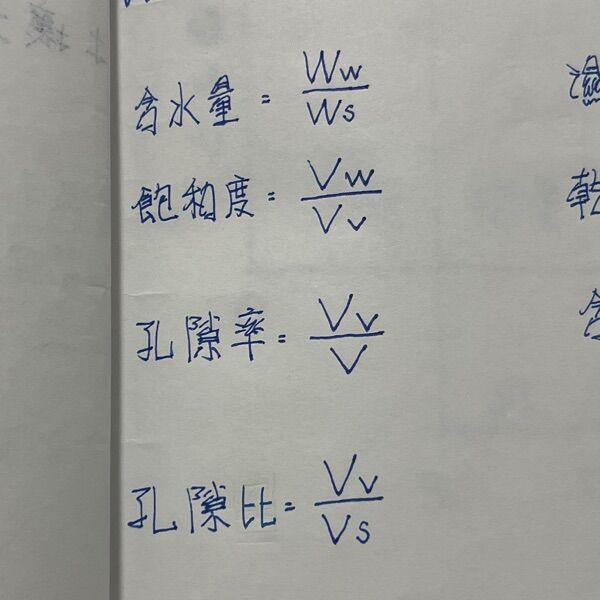 含水量 = Ww/Ws
飽和度 = Vw/Vv
孔隙率 = Vv/V
孔隙比 = Vv/Vs